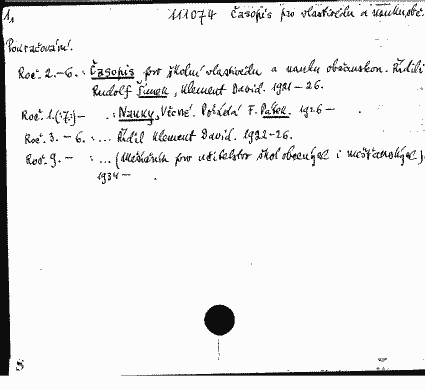 1, 111074 Časopis pro vlastivědu a nauku obč.
Pokračování.
Roč. 2.-6.: Časopis pro školní vlastivědu a nauku občanskou. Řídili
Rudolf Šimek, Klement David. 1921-26.
Roč. 1.(:7:)- .: Nauky, Věcné. Pořádá F. Pátek. 1926 -
Roč. 3. - 6. : ... Řídil Klement David. 1922-26.
Roč. 9. - : ... (Měsíčník pro učitelstvo škol obecných i měšťanských).
1934 - .
S